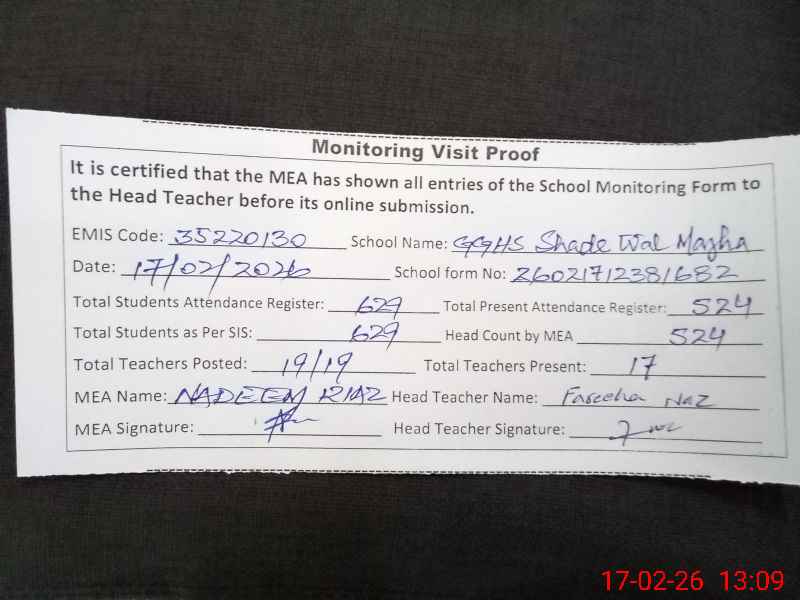 Monitoring Visit Proof
It is certified that the MEA has shown all entries of the School Monitoring Form to
the Head Teacher before its online submission.
EMIS Code: 35220130 School Name: GGHS Shade Wal Mazha
Date: 17/02/2026 School form No: 26021712381682
Total Students Attendance Register: 629 Total Present Attendance Register: 524
Total Students as Per SIS: 629 Head Count by MEA 524
Total Teachers Posted: 19/19 Total Teachers Present: 17
MEA Name: NADEEM RIAZ Head Teacher Name: Fareeha Naz
MEA Signature: Head Teacher Signature:
17-02-26 13:09